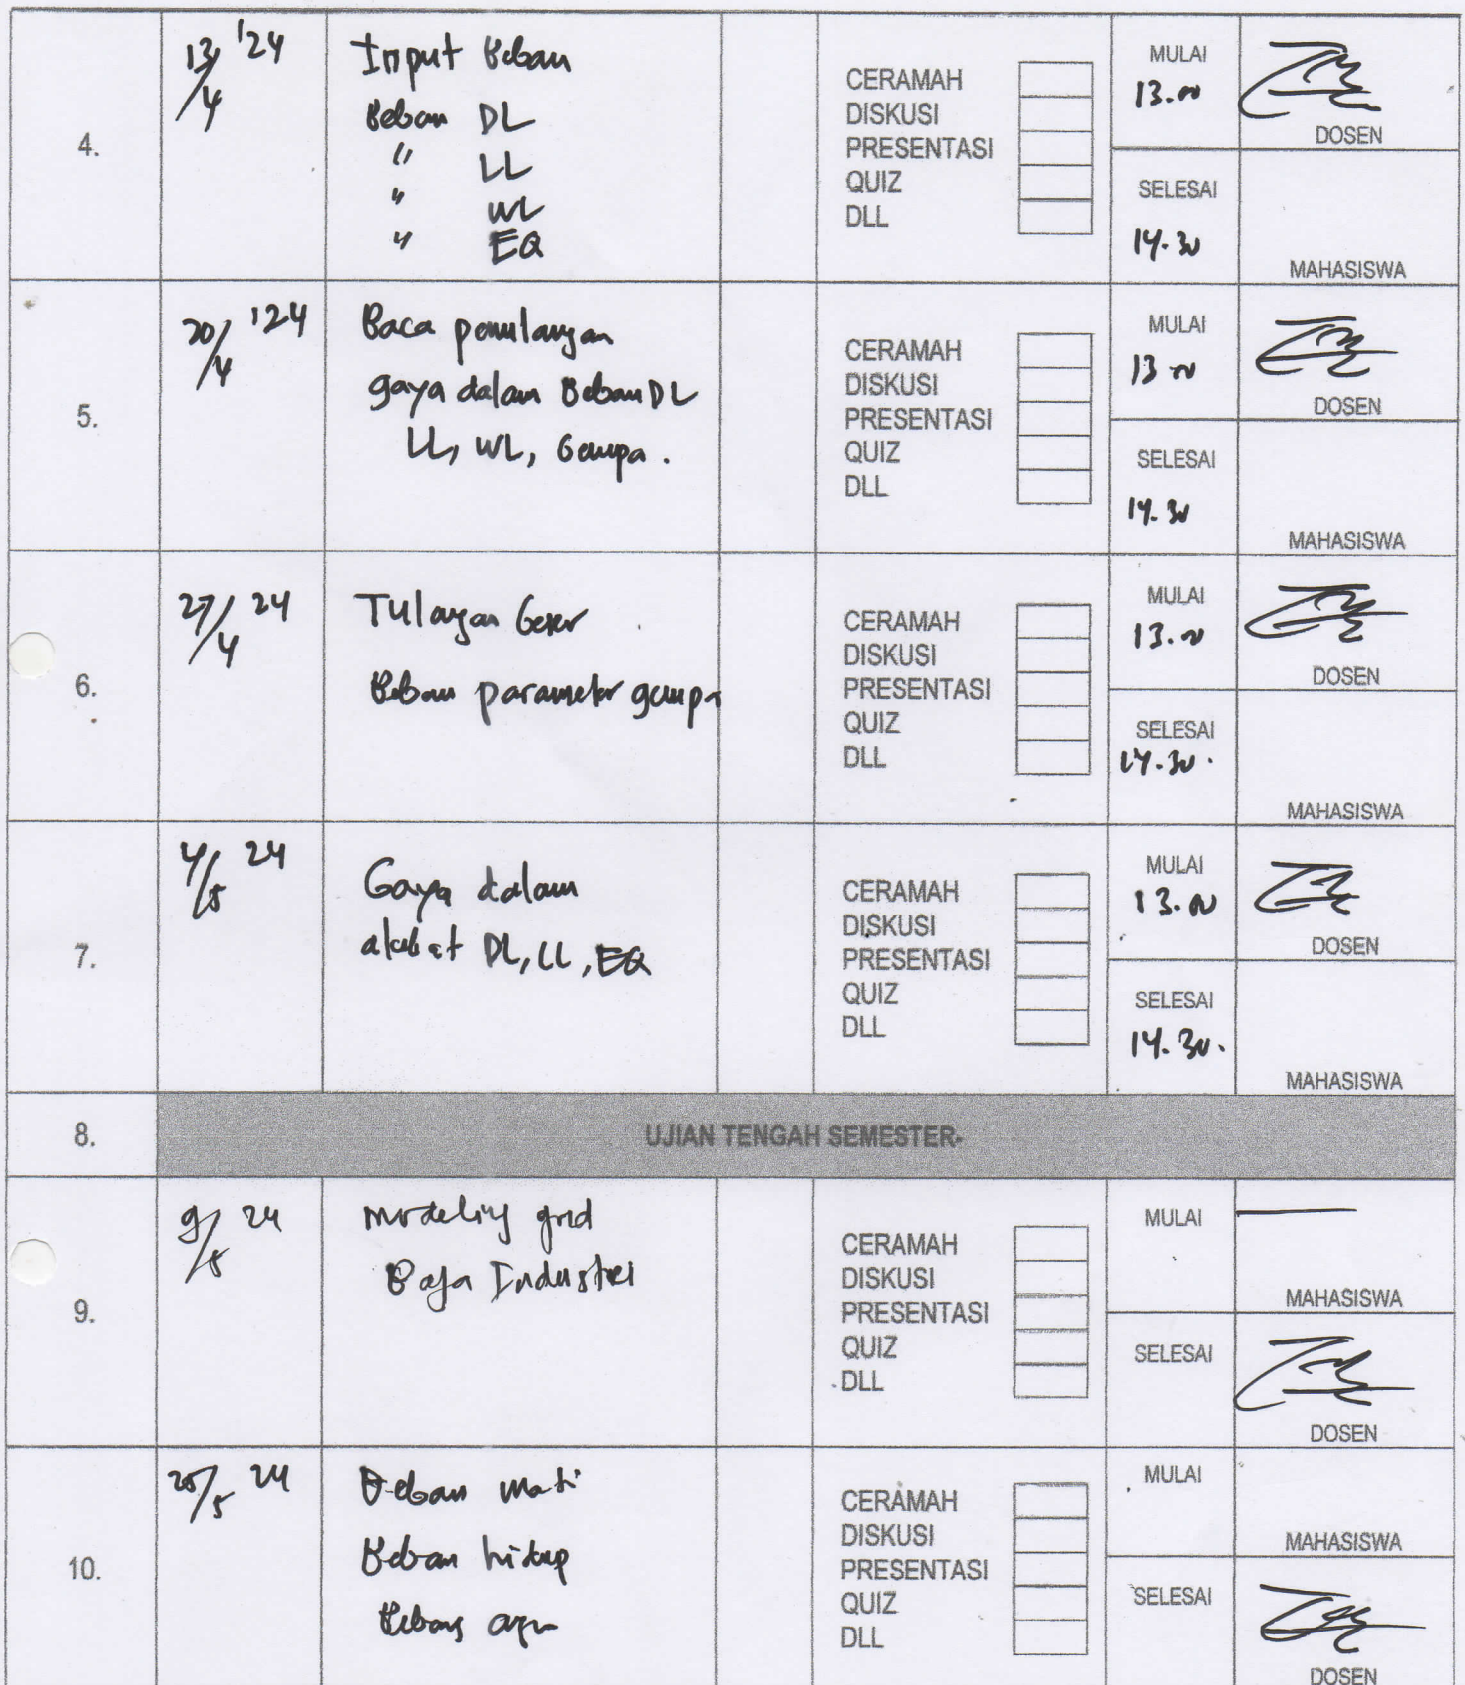 4.
13/4 '24
Input Beban
Beban DL
" LL
" WL
" EQ
CERAMAH
DISKUSI
PRESENTASI
QUIZ
DLL
MULAI
13.00
DOSEN
SELESAI
14.30
MAHASISWA
5.
20/4 '24
Baca penulangan
gaya dalam Beban DL
LL, WL, Gempa.
CERAMAH
DISKUSI
PRESENTASI
QUIZ
DLL
MULAI
13 00
DOSEN
SELESAI
14.30
MAHASISWA
6.
27/4 24
Tulangan Geser
Beban parameter gempa
CERAMAH
DISKUSI
PRESENTASI
QUIZ
DLL
MULAI
13.00
DOSEN
SELESAI
14.30.
MAHASISWA
7.
4/5 24
Gaya dalam
akibat DL, LL, EQ
CERAMAH
DISKUSI
PRESENTASI
QUIZ
DLL
MULAI
13.00
DOSEN
SELESAI
14.30.
MAHASISWA
8.
UJIAN TENGAH SEMESTER
9.
9/5 24
modeling grid
Baja Industri
CERAMAH
DISKUSI
PRESENTASI
QUIZ
DLL
MULAI
MAHASISWA
SELESAI
DOSEN
10.
/5 24
Beban mati
Beban hidup
Beban
CERAMAH
DISKUSI
PRESENTASI
QUIZ
DLL
MULAI
MAHASISWA
SELESAI
DOSEN